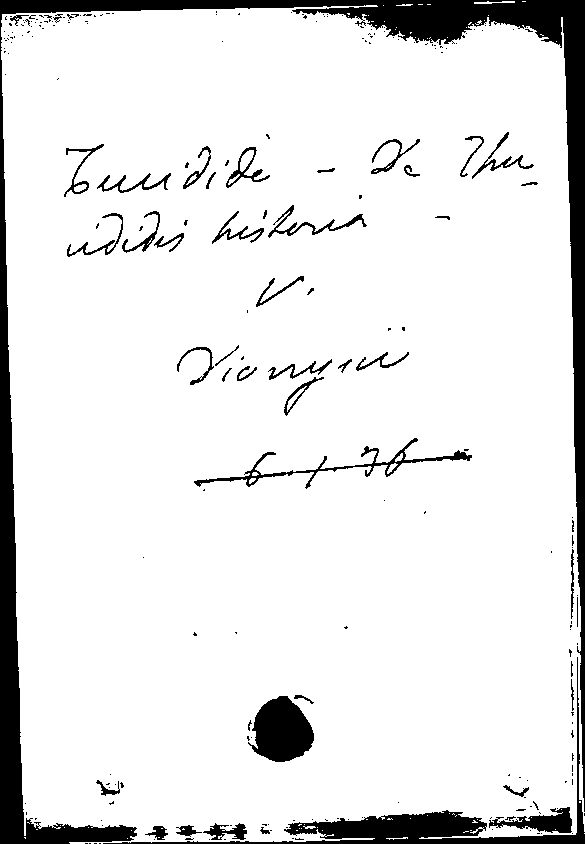 Tucidide - De Thu-
cididis historia -
V.
Dionysii
6 / 76